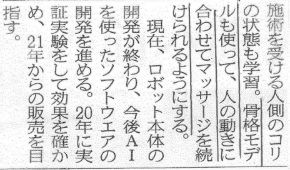 施術を受ける人側のコリ
の状態も学習。骨格モデ
ルも使って、人の動きに
合わせてマッサージを続
けられるようにする。
　現在、ロボット本体の
開発が終わり、今後AI
を使ったソフトウエアの
開発を進める。20年に実
証実験をして効果を確か
め、21年からの販売を目
指す。